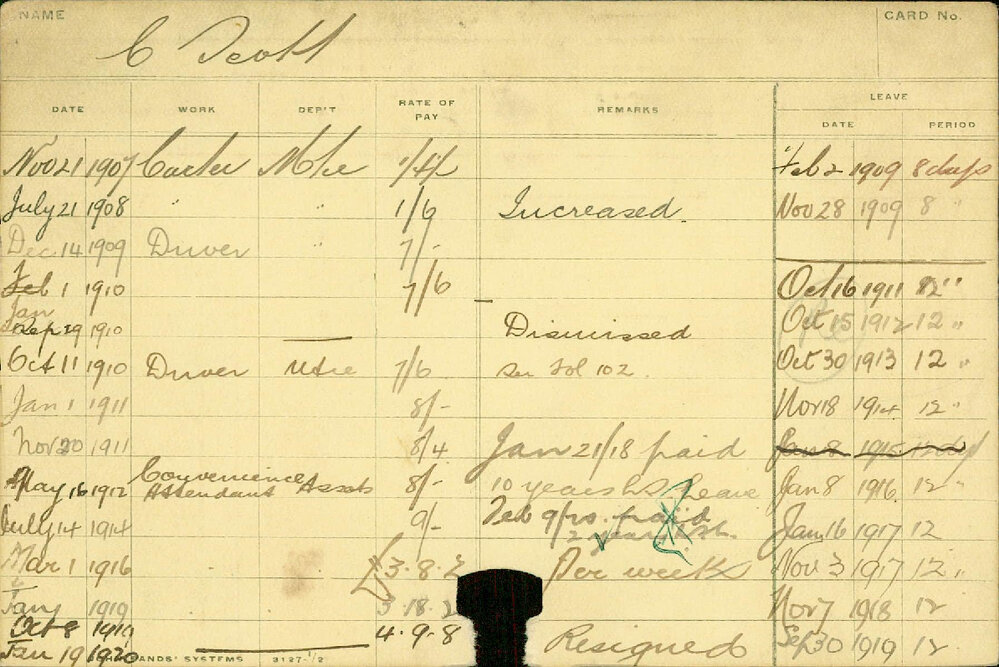 NAME CARD No.
C Scott
DATE WORK DEP'T RATE OF PAY REMARKS LEAVE
DATE PERIOD
Nov 21 1907 Carter 1/4 Feb 2 1909 8 days
July 21 1908 " " 1/6 Increased. Nov 28 1909 8 "
Dec 14 1909 Driver " 7/-
Feb 1 1910 7/6 Oct 16 1911 12 "
Jan
Sep 29 1910 Dismissed Oct 15 1912 12 "
Oct 11 1910 Driver 7/6 see Fol 102. Oct 30 1913 12 "
Jan 1 1911 8/- Nov 18 1914 12 "
Nov 20 1911 8/4 Jan 21/18 paid Jan 8 1915
May 16 1912 Convenience Attendant Assets 8/- 10 years LS Leave Jan 8 1916 12 "
July 14 1914 9/- Feb 9/20 paid Jan 16 1917 12
2 years
Mar 1 1916 £3.8.2 Per week Nov 3 1917 12 "
Jany 1919 3.18.2 Nov 7 1918 12
Oct 8 1919 4.9.8 Sep 30 1919 12
Jan 19 1920 Resigned
SYSTEMS 3127-1/2